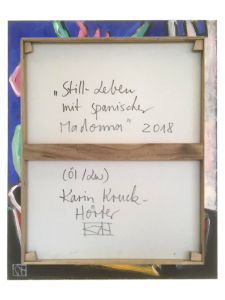 „Still-Leben
mit spanischer
Madonna" 2018
(Öl/Lw)
Karin Kruck-
Hörter